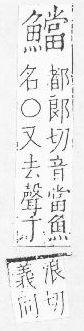 鱨都郎切音當魚
名〇又去聲丁
浪切
義同